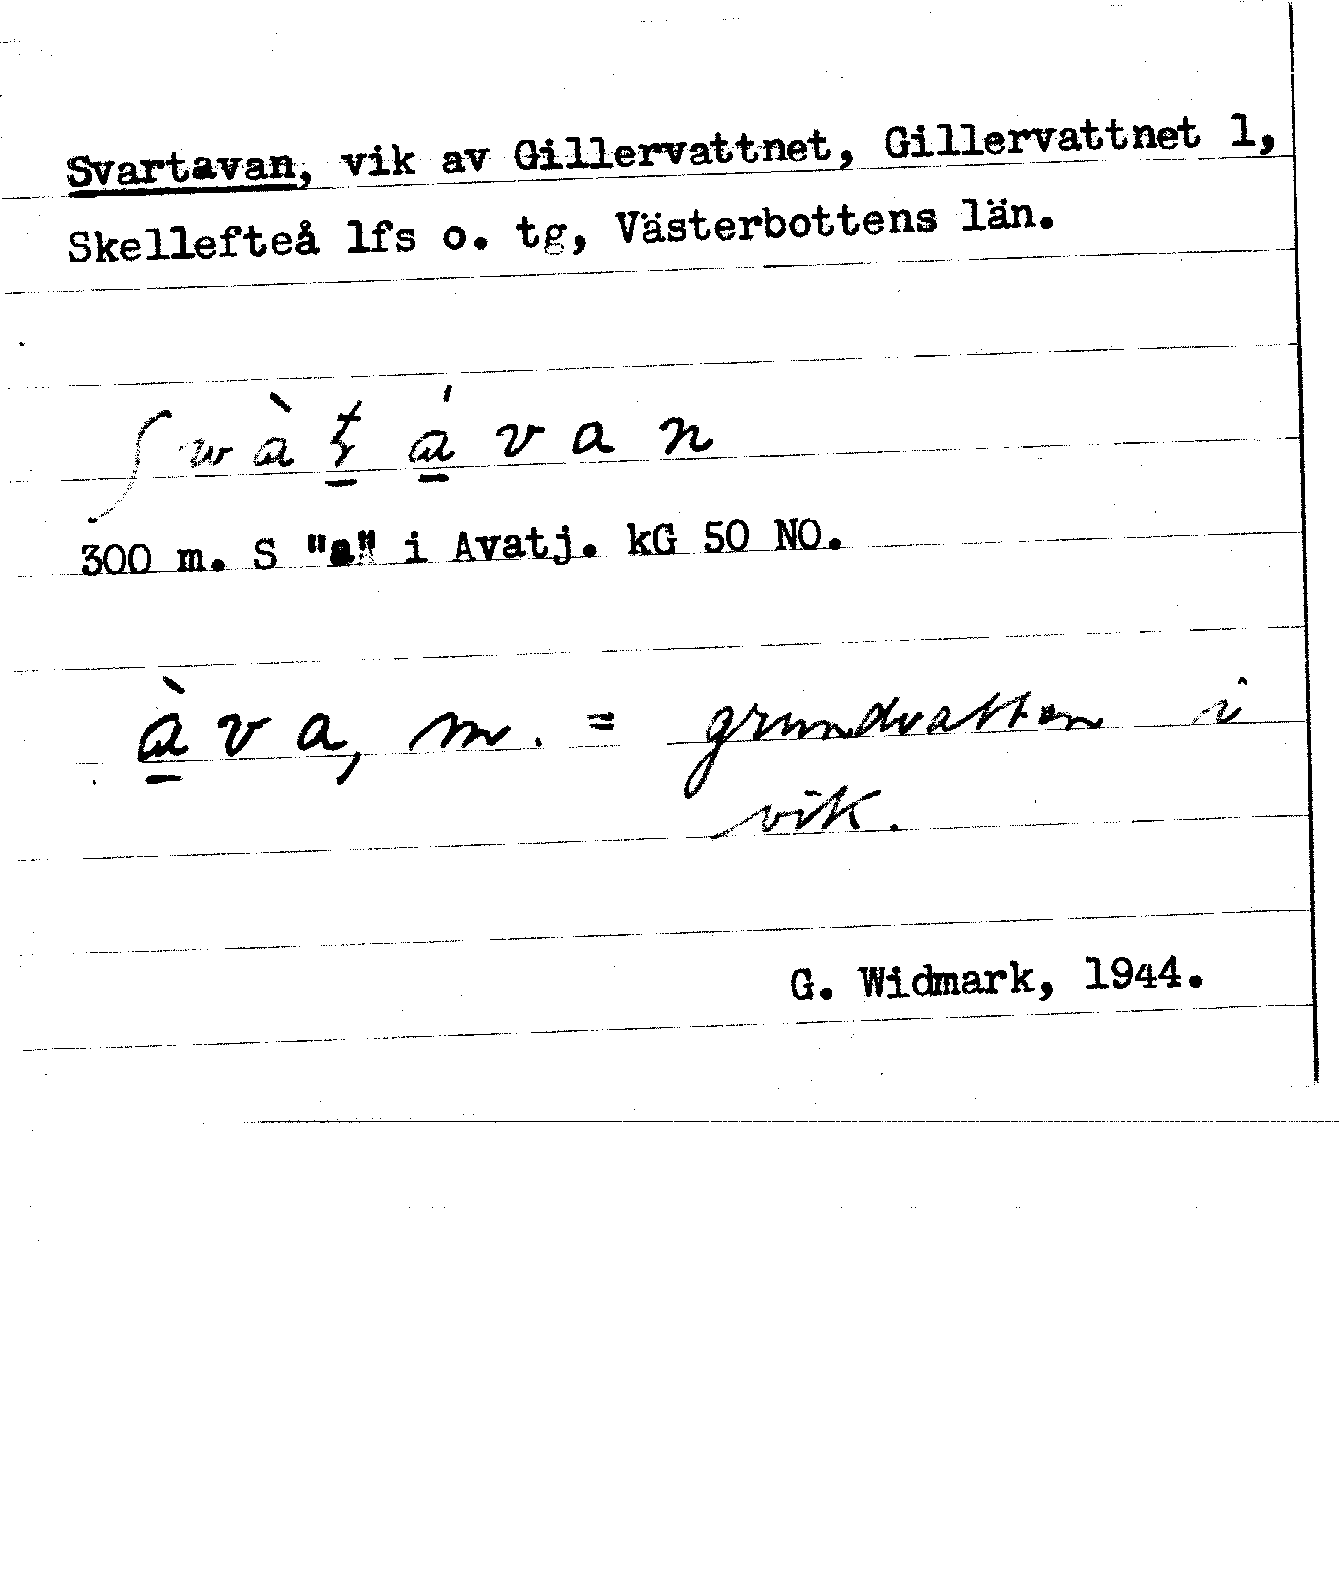 Svartavan, vik av Gillervattnet, Gillervattnet 1,
Skellefteå lfs o. tg, Västerbottens län.
300 m. S "a" i Avatj. kG 50 NO.
àva, m. = grundvatten i
vik.
G. Widmark, 1944.